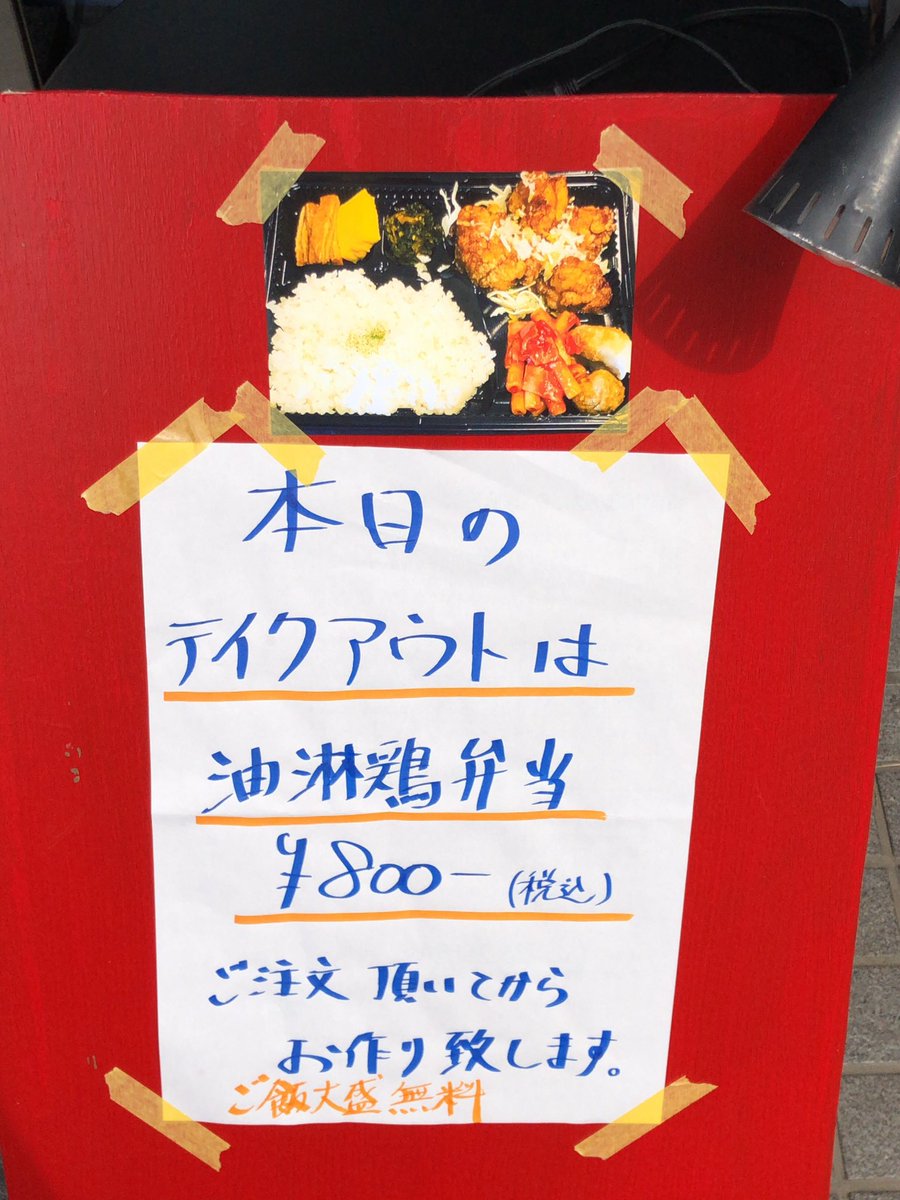 本日の
テイクアウトは
油淋鶏弁当
¥800-(税込)
ご注文頂いてから
お作り致します。
ご飯大盛無料